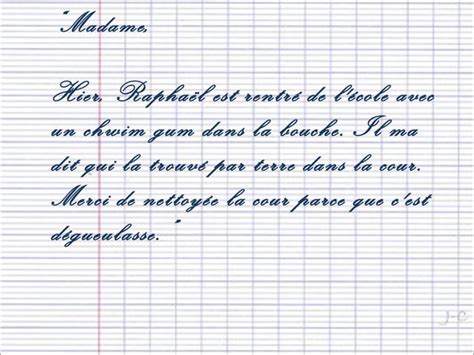 "Madame,
Hier, Raphaël est rentré de l'école avec
un chwim gum dans la bouche. Il ma
dit qui la trouvé par terre dans la cour.
Merci de nettoyée la cour parce que c'est
dégueulasse."
J-C